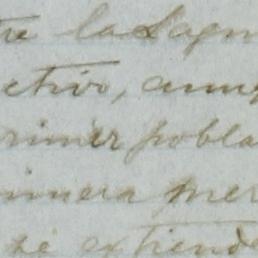 la Lagu
ctivo, aunq
rimer pobla
imera mer
se extiende